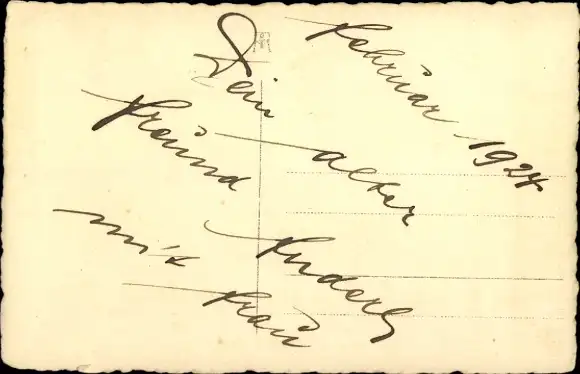 Februar 1924
Dein alter
Freund
mit Frau